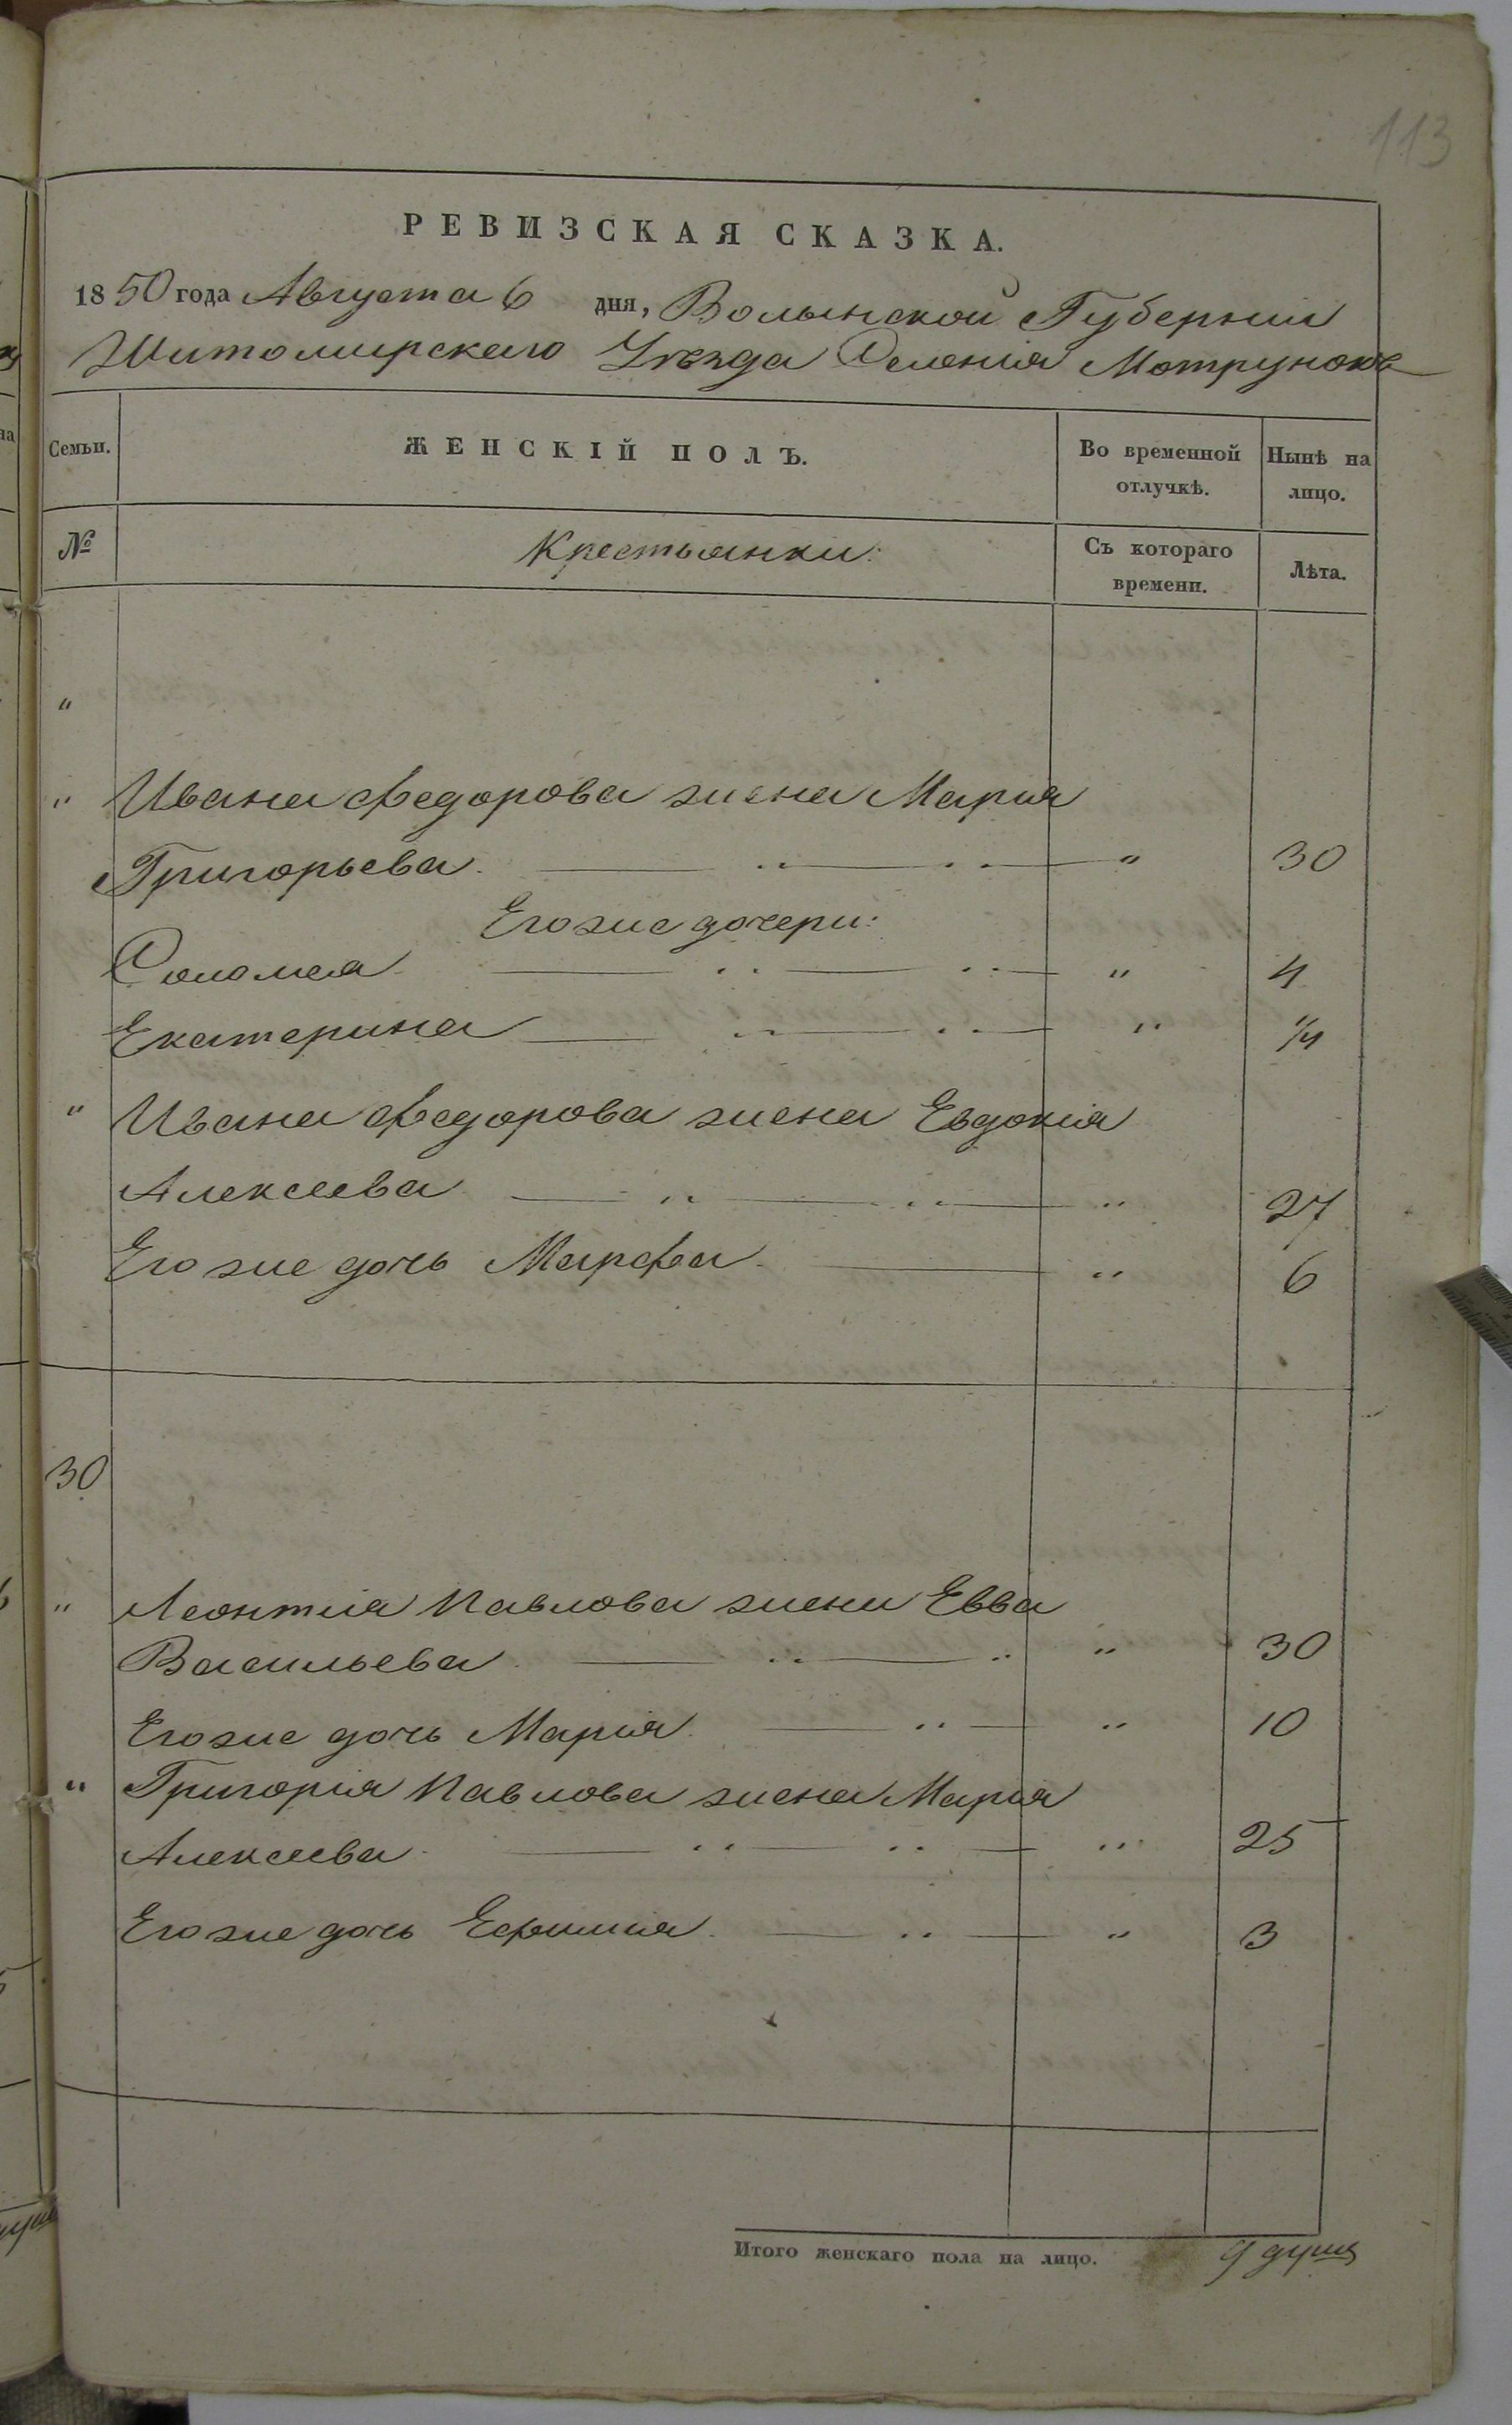 113
РЕВИЗСКАЯ СКАЗКА.
1850 года Августа 6 дня, Волынской Губерніи
Житомирскаго Уѣзда Селенія Мотрунокъ
Семьи. ЖЕНСКІЙ ПОЛЪ. Во временной отлучкѣ. Нынѣ на лицо.
№ Крестьянки: Съ котораго времени. Лѣта.
"
" Ивана Федорова жена Марія
Григорьева. " 30
Его же дочери:
Соломея " 4
Екатерина " 1/4
" Ивана Федорова жена Евдокія
Алексеева " 27
Его же дочь Марфа. " 6
30
" Леонтія Павлова жена Евва
Васильева. " 30
Его же дочь Марія. " 10
" Григорія Павлова жена Марія
Алексеева. " 25
Его же дочь Ефимія. " 3
Итого женскаго пола на лицо. 9 душъ